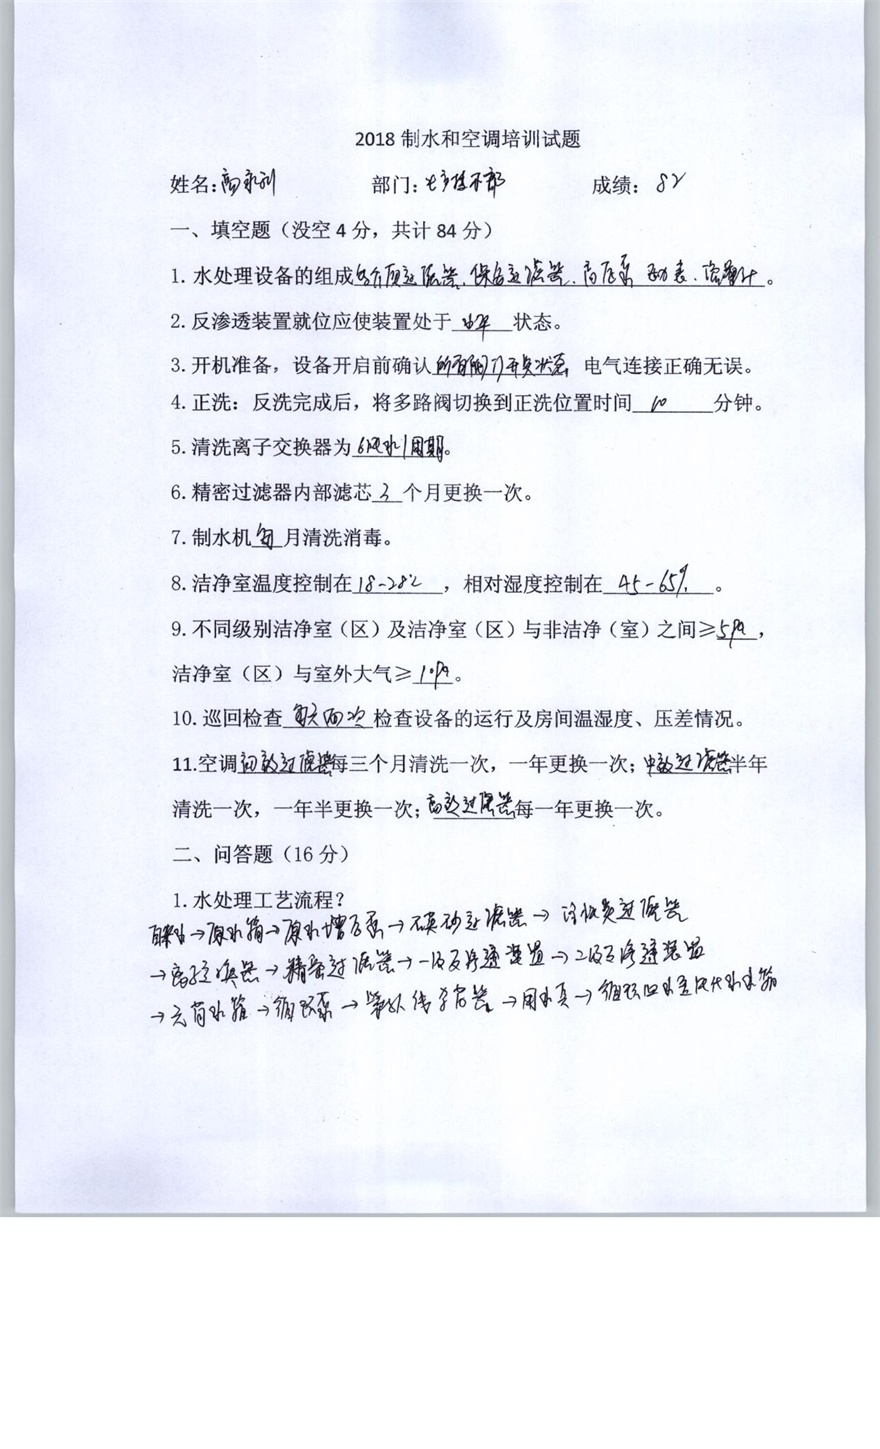 2018 制水和空调培训试题
姓名:高永利 部门:生产技术部 成绩: 82
一、填空题（没空 4 分，共计 84 分）
1. 水处理设备的组成多介质过滤器、保安过滤器、高压泵 表、流量计。
2. 反渗透装置就位应使装置处于水平状态。
3. 开机准备，设备开启前确认所有阀门开关状态 电气连接正确无误。
4. 正洗：反洗完成后，将多路阀切换到正洗位置时间 10 分钟。
5. 清洗离子交换器为 1周期。
6. 精密过滤器内部滤芯 3 个月更换一次。
7. 制水机每月清洗消毒。
8. 洁净室温度控制在18-28℃，相对湿度控制在 45-65% 。
9. 不同级别洁净室（区）及洁净室（区）与非洁净（室）之间≥5Pa，
洁净室（区）与室外大气≥10Pa。
10. 巡回检查 每天两次 检查设备的运行及房间温湿度、压差情况。
11.空调初效过滤器每三个月清洗一次，一年更换一次；中效过滤器半年
清洗一次，一年半更换一次；高效过滤器每一年更换一次。
二、问答题（16 分）
1. 水处理工艺流程？
自来水→原水箱→原水增压泵→石英砂过滤器→活性炭过滤器
→离子交换器→精密过滤器→一级反渗透装置→2级反渗透装置
→无菌水箱→循环泵→紫外线杀菌器→用水点→循环回水至纯化水水箱